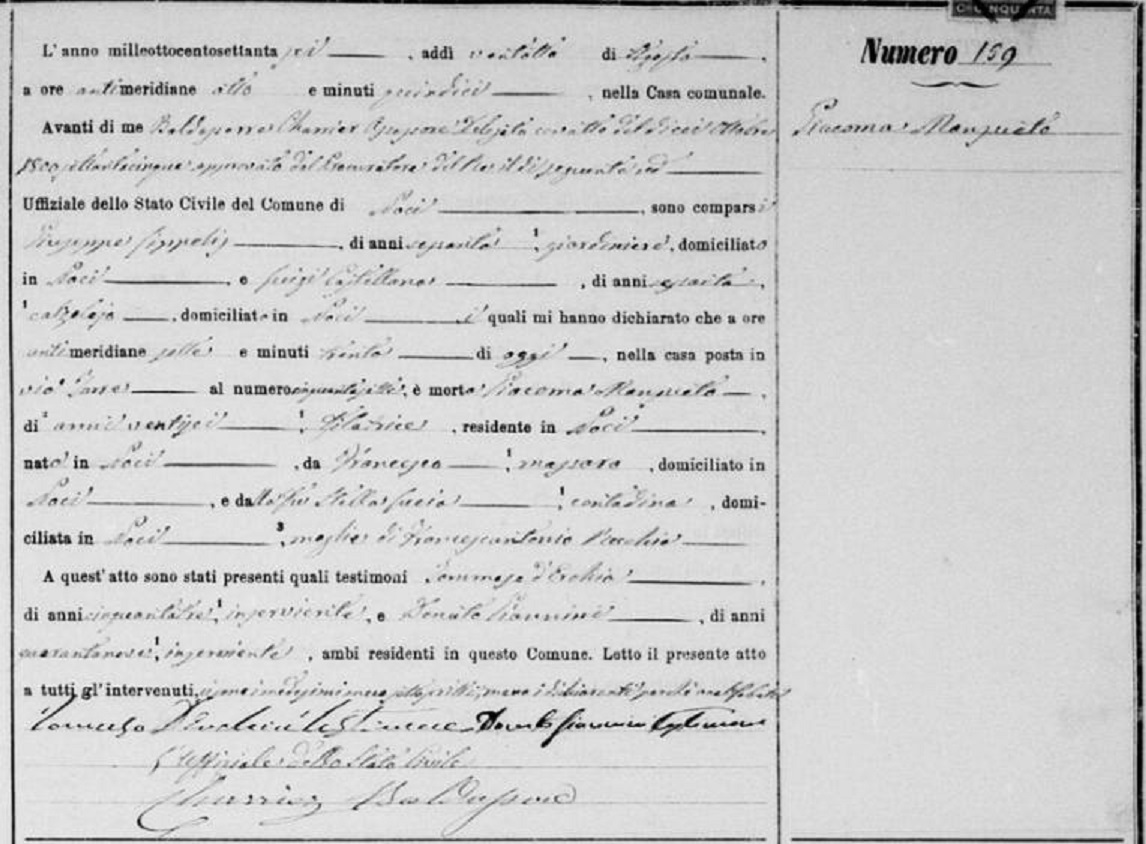 CINQUANTA
Numero 159
Giacoma Mansueto
L'anno milleottocentosettanta sei, addì ventotto di Agosto,
a ore antimeridiane otto e minuti quindici, nella Casa comunale.
Avanti di me Baldassarre Charrier Assessore Delegato con atto del dieci Ottobre
1800settantacinque approvato dal Procuratore del Re il dì seguente ed
Uffiziale dello Stato Civile del Comune di Noci, sono comparsi
Giuseppe Lippolis, di anni sessanta, giardiniere, domiciliato
in Noci, e Luigi Castellana, di anni sessanta,
calzolajo, domiciliato in Noci, i quali mi hanno dichiarato che a ore
antimeridiane sette e minuti trenta di oggi, nella casa posta in
via Torre al numero cinquantasette, è morta Giacoma Mansueto,
di anni ventisei, filatrice, residente in Noci,
nata in Noci, da Francesco, massaro, domiciliato in
Noci, e dalla fu Stella Lucia, contadina, domi-
ciliata in Noci, moglie di Francescantonio Recchia
A quest'atto sono stati presenti quali testimoni Tommaso d'Erchia,
di anni cinquantatre, inserviente, e Donato Giannini, di anni
quarantanove, inserviente, ambi residenti in questo Comune. Letto il presente atto
a tutti gl'intervenuti, i medesimi meco sottoscritti, meno i dichiaranti perchè analfabeti
Tomaso Derchia testimone Donato Giannini testimone
L'Uffiziale dello Stato Civile
Charrier Baldassarre